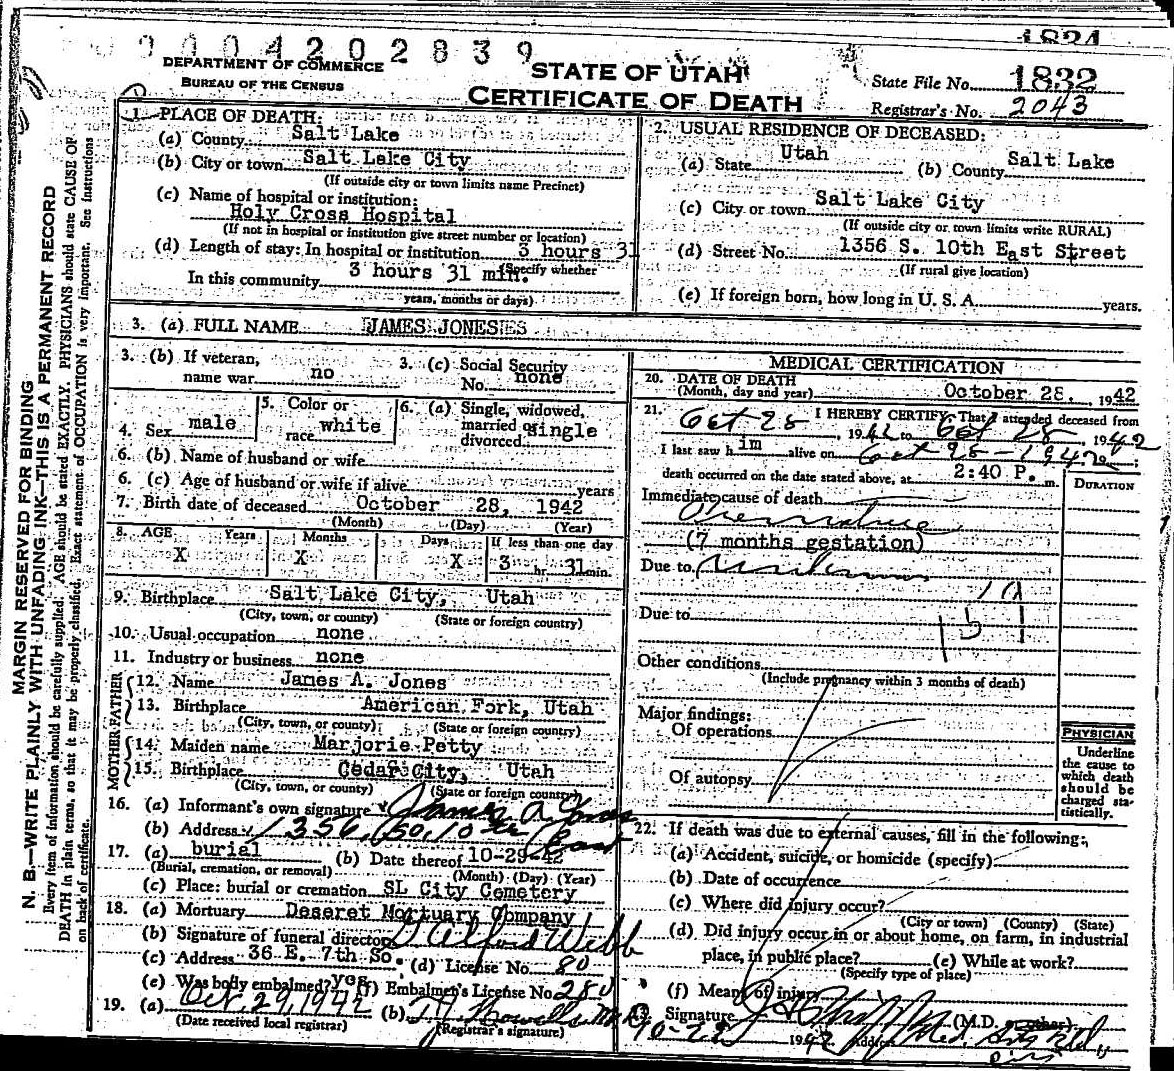 1831
0004202839
DEPARTMENT OF COMMERCE
BUREAU OF THE CENSUS
STATE OF UTAH
CERTIFICATE OF DEATH
State File No. 1832
Registrar's No. 2043
MARGIN RESERVED FOR BINDING
N. B.—WRITE PLAINLY WITH UNFADING INK—THIS IS A PERMANENT RECORD
Every item of information should be carefully supplied. AGE should be stated EXACTLY. PHYSICIANS should state CAUSE OF
DEATH in plain terms, so that it may be properly classified. Exact statement of OCCUPATION is very important. See instructions
on back of certificate.
1. PLACE OF DEATH:
(a) County Salt Lake
(b) City or town Salt Lake City
(If outside city or town limits name Precinct)
(c) Name of hospital or institution:
Holy Cross Hospital
(If not in hospital or institution give street number or location)
(d) Length of stay: In hospital or institution 3 hours 31
(Specify whether
In this community 3 hours 31 min.
years, months or days)
2. USUAL RESIDENCE OF DECEASED:
(a) State Utah (b) County Salt Lake
(c) City or town Salt Lake City
(If outside city or town limits write RURAL)
(d) Street No. 1356 S. 10th East Street
(If rural give location)
(e) If foreign born, how long in U. S. A. years.
3. (a) FULL NAME JAMES JONES
3. (b) If veteran, name war no
3. (c) Social Security No. none
4. Sex male
5. Color or race white
6. (a) Single, widowed, married or divorced single
6. (b) Name of husband or wife
6. (c) Age of husband or wife if alive years
7. Birth date of deceased October 28, 1942
(Month) (Day) (Year)
8. AGE Years Months Days If less than one day
X X X 3 hr. 31 min.
9. Birthplace Salt Lake City, Utah
(City, town, or county) (State or foreign country)
10. Usual occupation none
11. Industry or business none
FATHER
12. Name James A. Jones
13. Birthplace American Fork, Utah
(City, town, or county) (State or foreign country)
MOTHER
14. Maiden name Marjorie Petty
15. Birthplace Cedar City, Utah
(City, town, or county) (State or foreign country)
16. (a) Informant's own signature James A. Jones
(b) Address 1356 So. 10th East
17. (a) burial (b) Date thereof 10-29-42
(Burial, cremation, or removal) (Month) (Day) (Year)
(c) Place: burial or cremation SL City Cemetery
18. (a) Mortuary Deseret Mortuary Company
(b) Signature of funeral director Alford Webb
(c) Address 36 E. 7th So. (d) License No. 80
(e) Was body embalmed? yes (f) Embalmer's License No. 280
19. (a) Oct. 29, 1942 (b)
(Date received local registrar) (Registrar's signature)
MEDICAL CERTIFICATION
20. DATE OF DEATH
(Month, day and year) October 28, 1942
21. I HEREBY CERTIFY That I attended deceased from
Oct 28, 1942 to Oct 28, 1942
I last saw h im alive on Oct 28-1942;
death occurred on the date stated above, at 2:40 P. m.
DURATION
Immediate cause of death
Premature
(7 months gestation)
Due to Unknown
Due to
Other conditions
(Include pregnancy within 3 months of death)
Major findings:
Of operations
Of autopsy
PHYSICIAN
Underline
the cause to
which death
should be
charged sta-
tistically.
22. If death was due to external causes, fill in the following:
(a) Accident, suicide, or homicide (specify)
(b) Date of occurrence
(c) Where did injury occur?
(City or town) (County) (State)
(d) Did injury occur in or about home, on farm, in industrial
place, in public place? (e) While at work?
(Specify type of place)
(f) Means of injury
23. Signature (M.D. or other)
1942 Address Med. Arts Bld.,